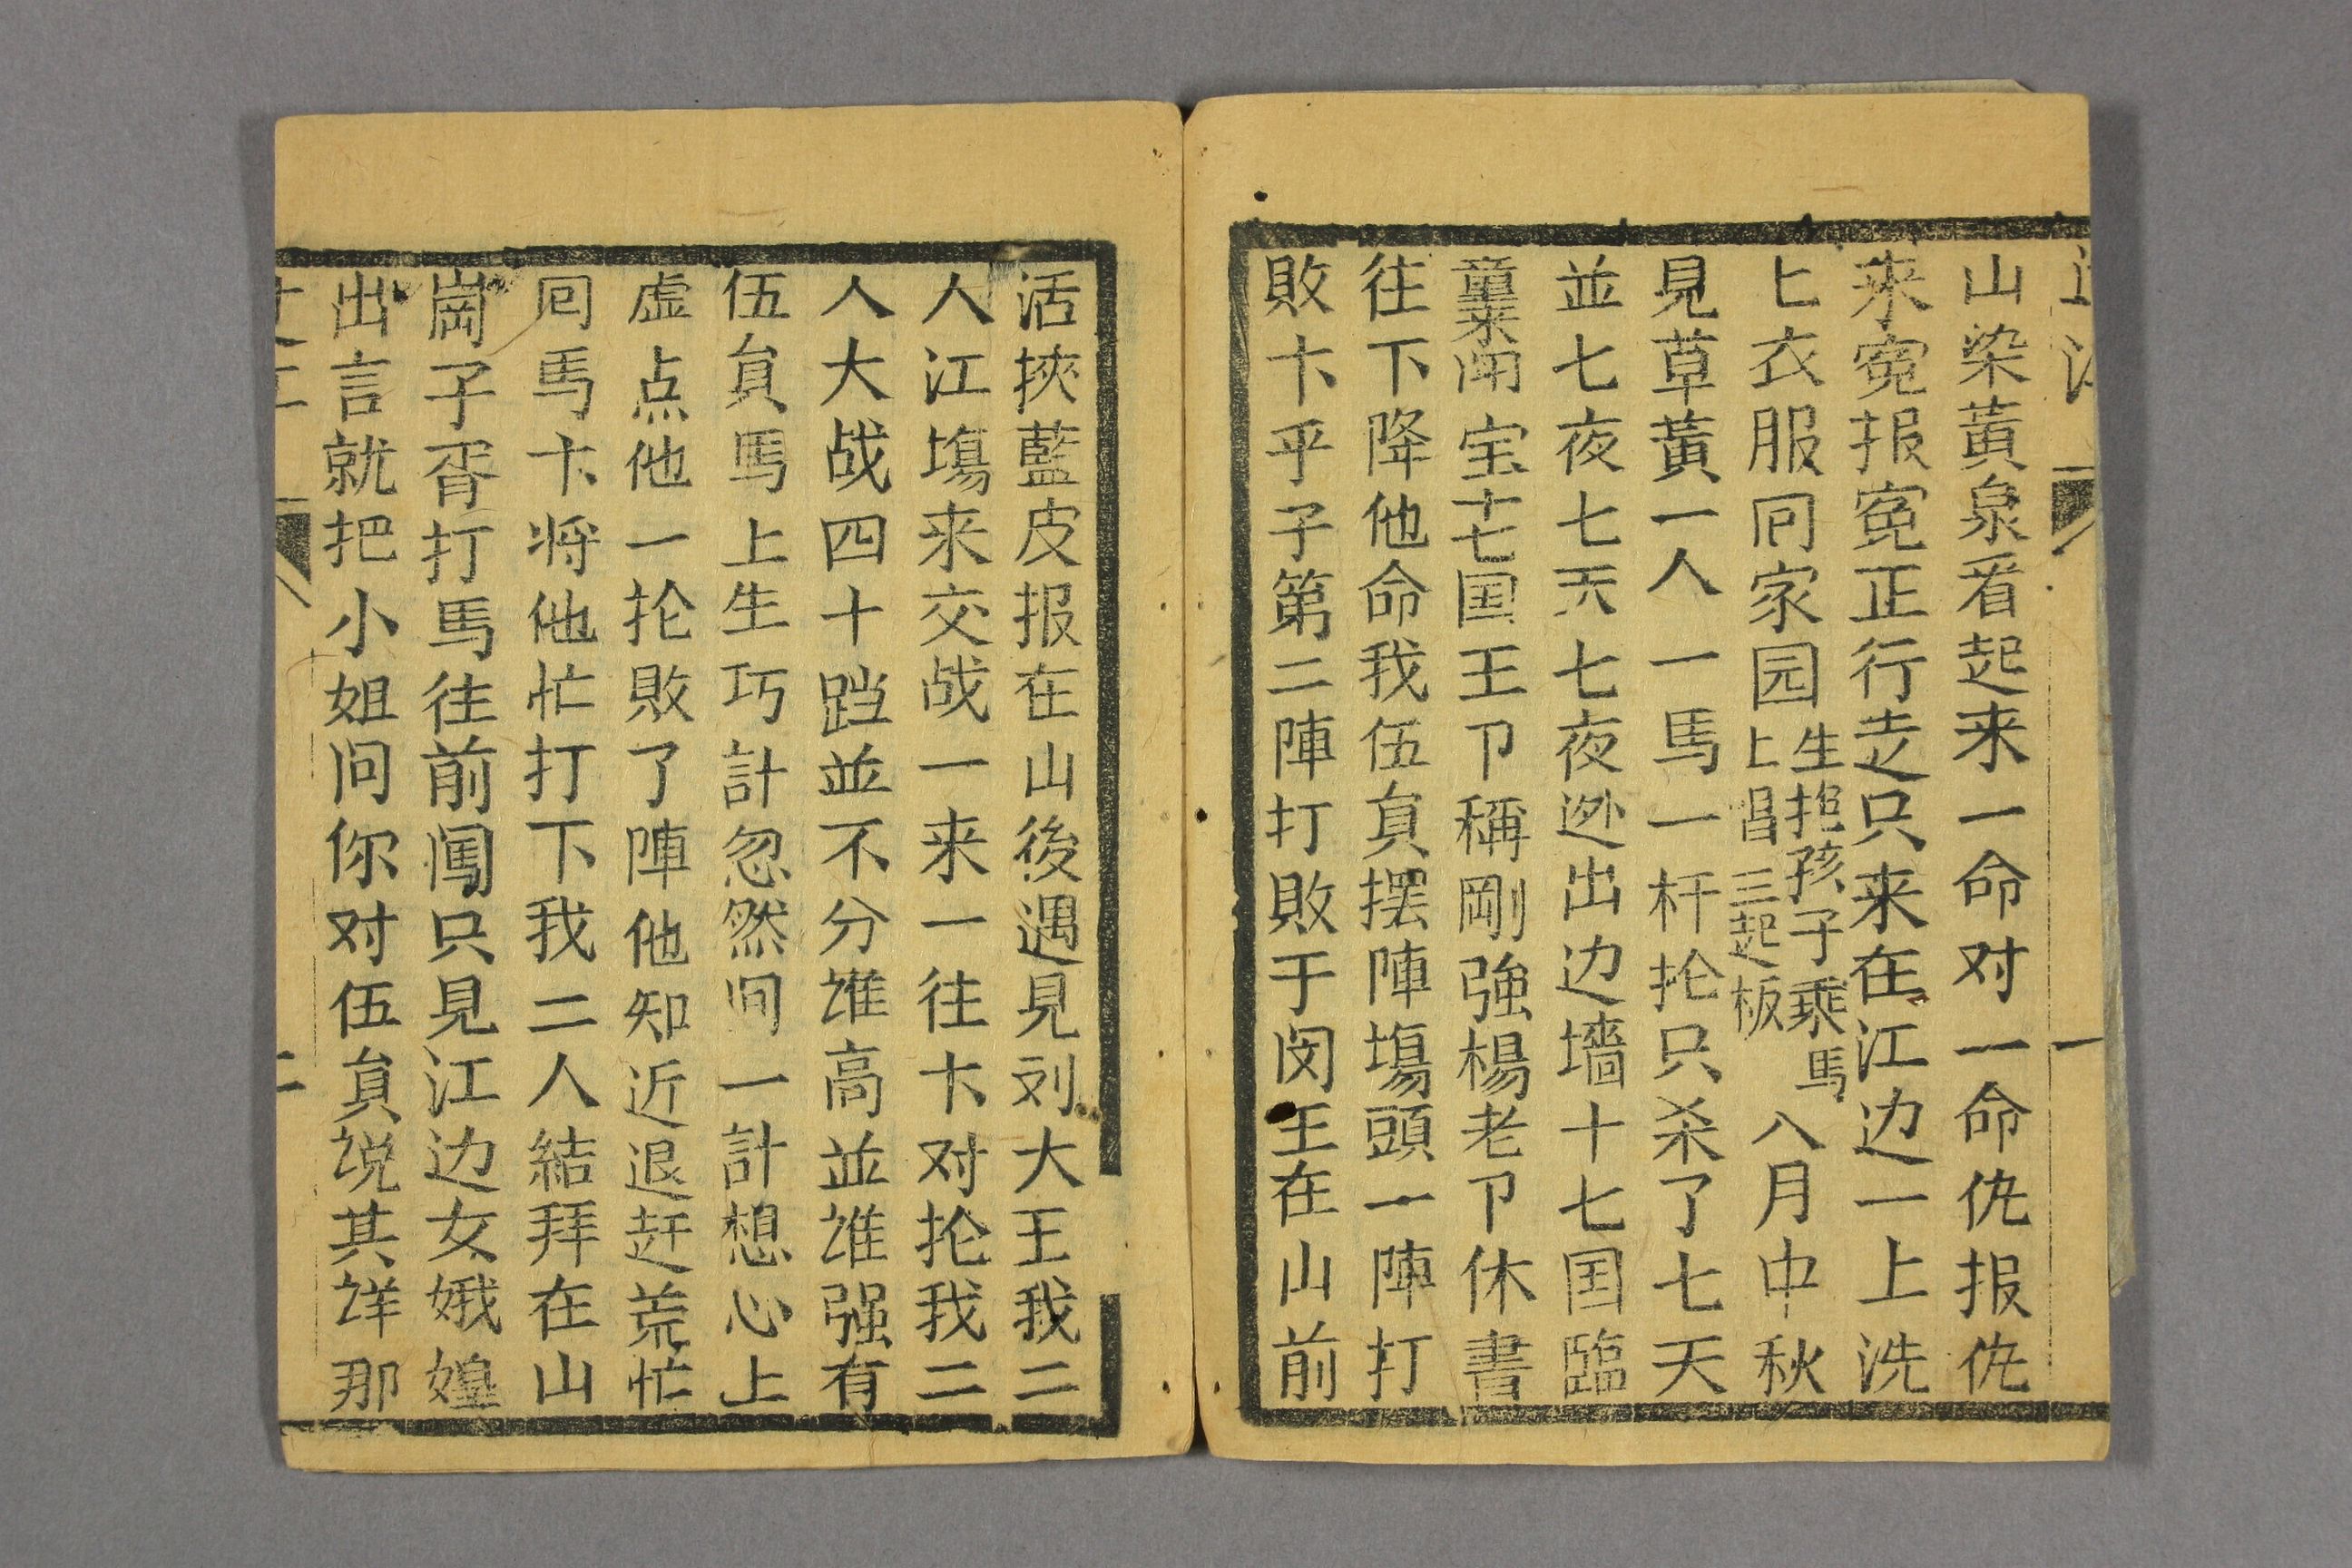 山染黄泉看起来一命对一命仇报仇
来寃报寃正行走只来在江边一上洗
上衣服囘家园生抱孩子乘馬上唱三起板八月中秋
見草黄一人一馬一杆抡只杀了七天
並七夜七天七夜迯出边墙十七国臨
童耒闹宝十七国王卩稱剛強楊老卩休書
往下降他命我伍貟摆陣塲頭一陣打
敗卞乎子第二陣打敗于闵王在山前
活挾藍皮报在山後遇見刘大王我二
人江塲来交战一来一往卡对抡我二
人大战四十趟並不分谁高並谁强有
伍貟馬上生巧計忽然间一計想心上
虚点他一抡敗了陣他知近退赶荒忙
囘馬卡将他忙打下我二人結拜在山
崗子胥打馬往前闖只見江边女娥媓
出言就把小姐问你对伍貟说其详那
二